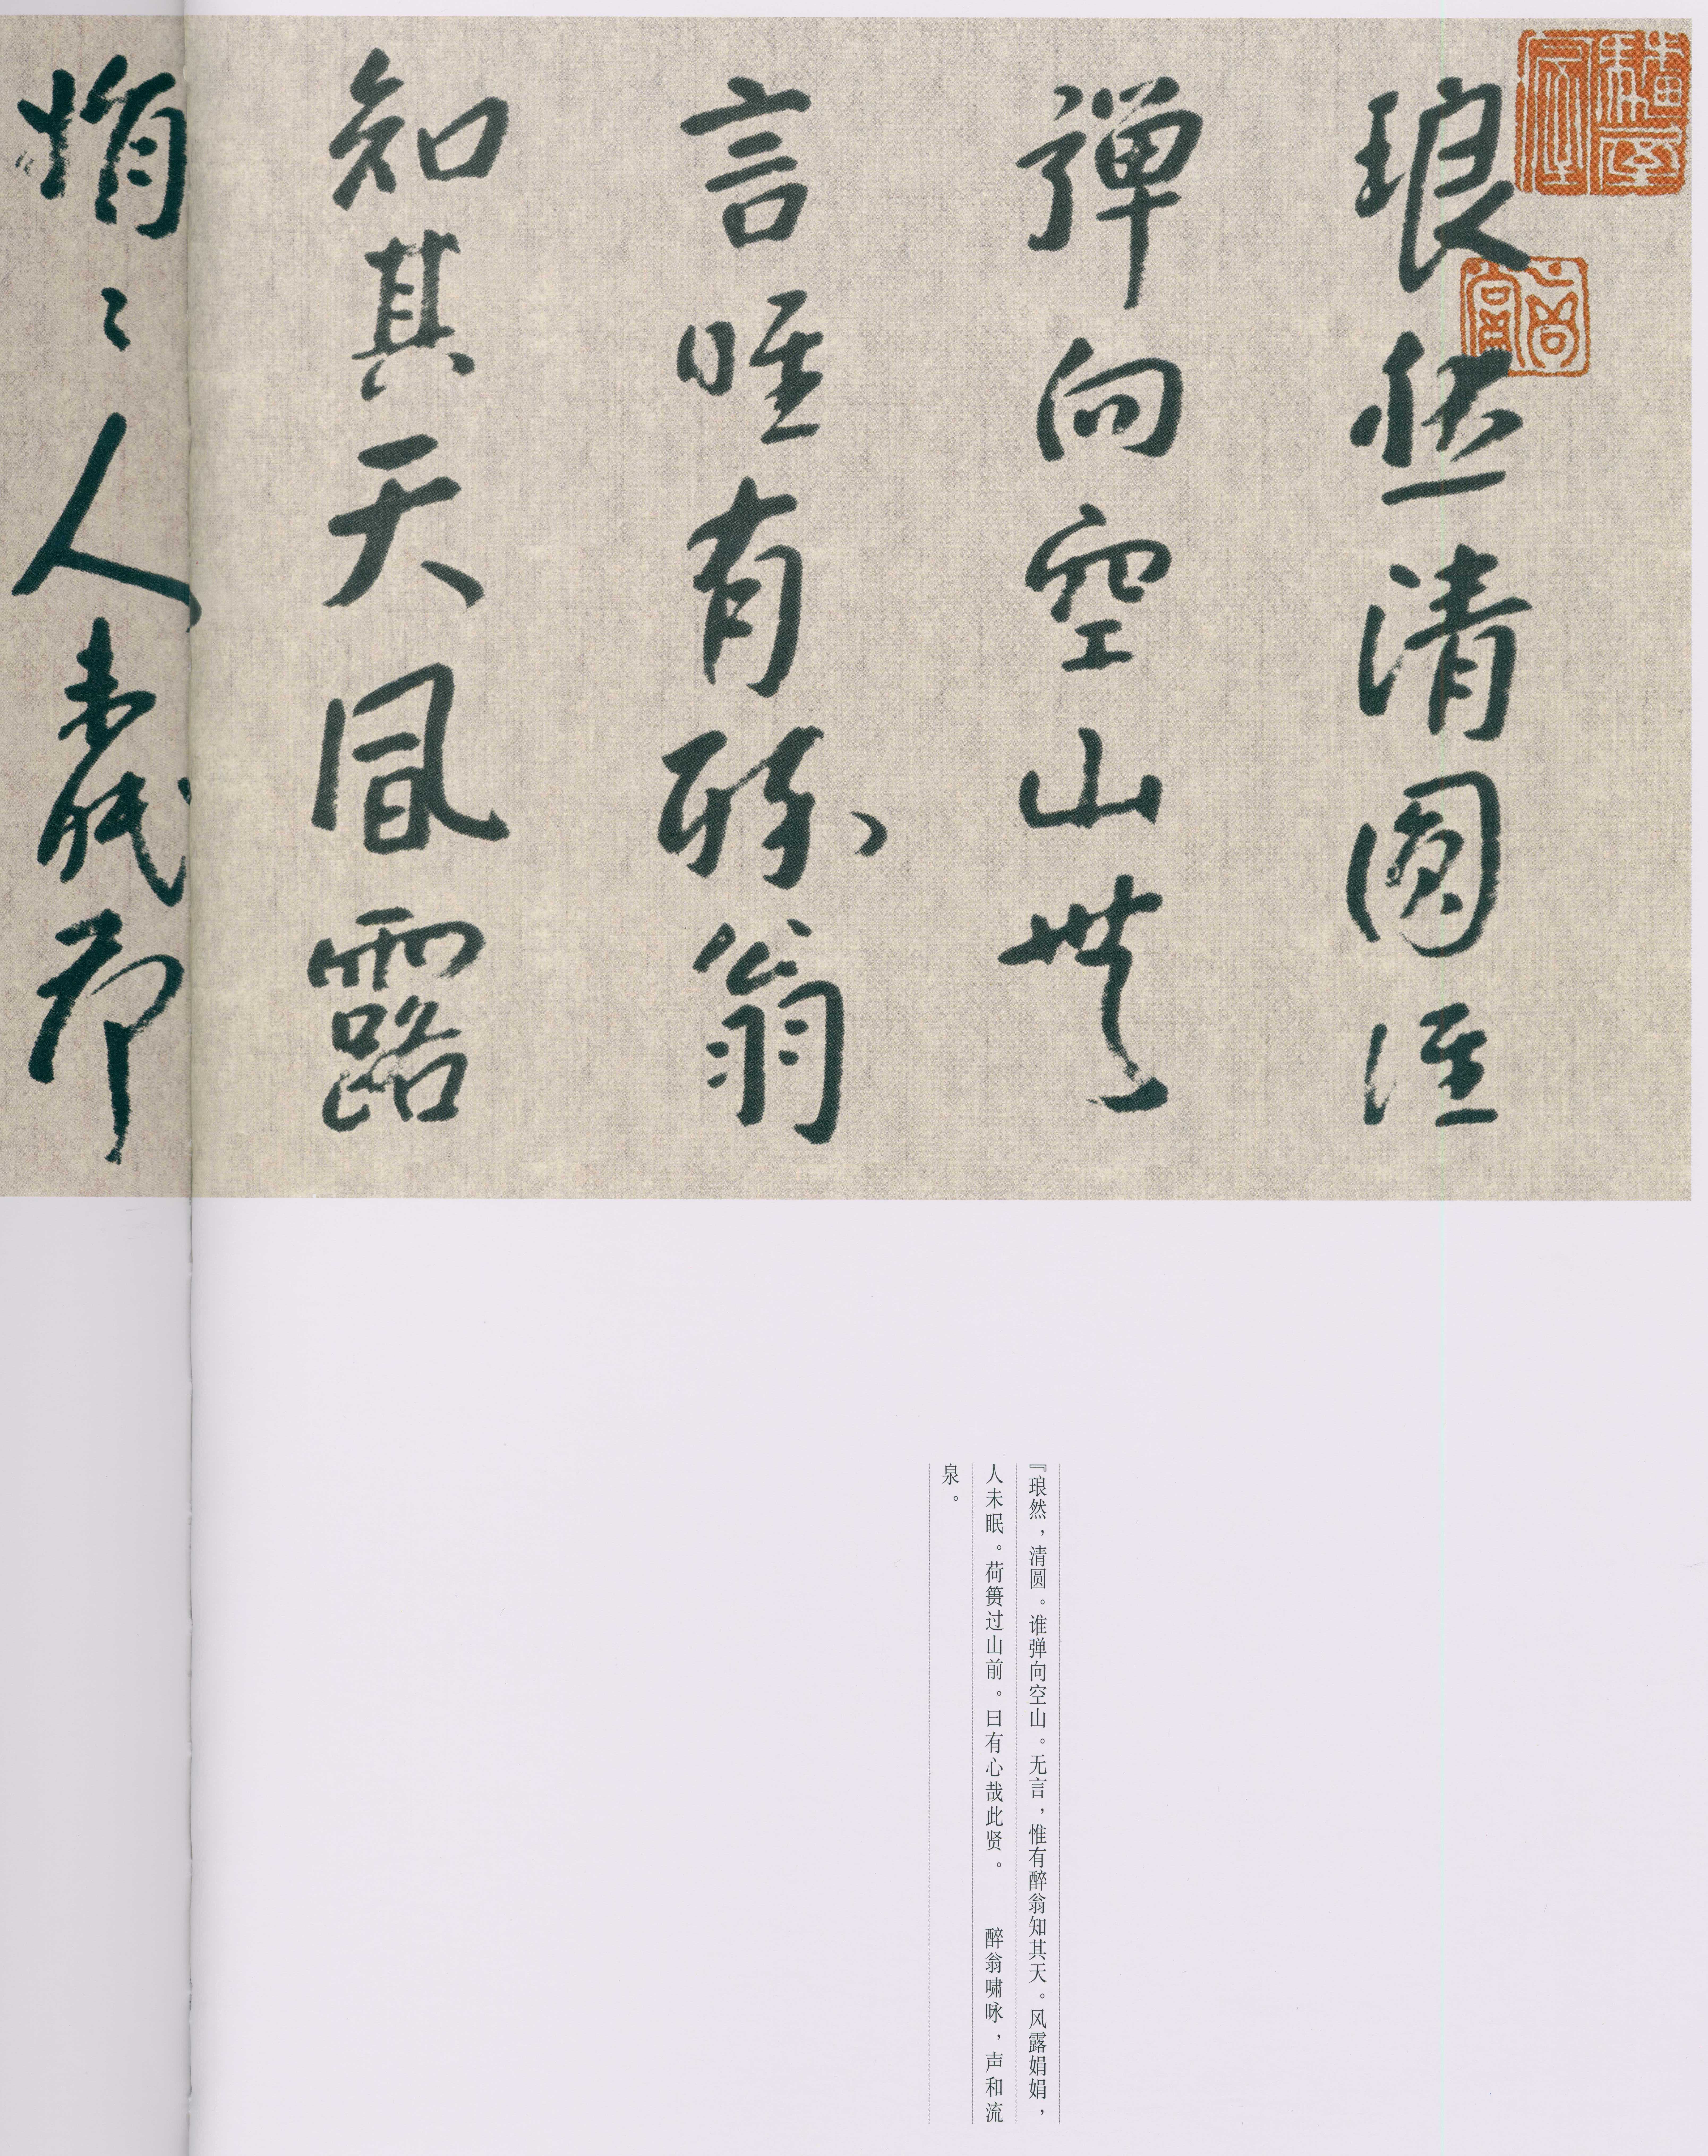 琅然清圆谁
弹向空山無
言唯有醉翁
知其天風露
娟〻人未眠荷
『琅然，清圆。谁弹向空山。无言，惟有醉翁知其天。风露娟娟，
人未眠。荷篑过山前。曰有心哉此贤。　醉翁啸咏，声和流
泉。